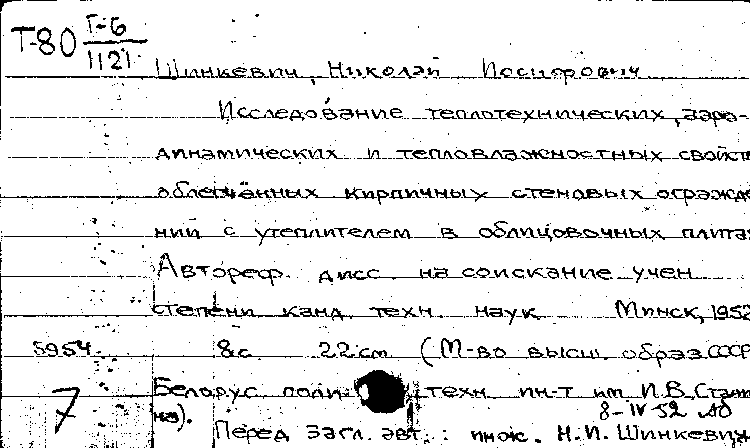 Т-80 Т-6
1121
Шинкевич, Николай Иосифович
Исследование теплотехнических, аэро-
динамических и тепловлажностных свойств
облегчённых кирпичных стеновых огражде
ний с утеплителем в облицовочных плитах
Автореф. дисс. на соискание учен
степени канд. техн. наук Минск, 1952
5954 8с. 22см (М-во высш. образ. СССР
Белорус. поли- техн. ин-т им. И.В. Стали
на). 8-IV-52
7 Перед загл. авт.: инж. Н.И. Шинкевич